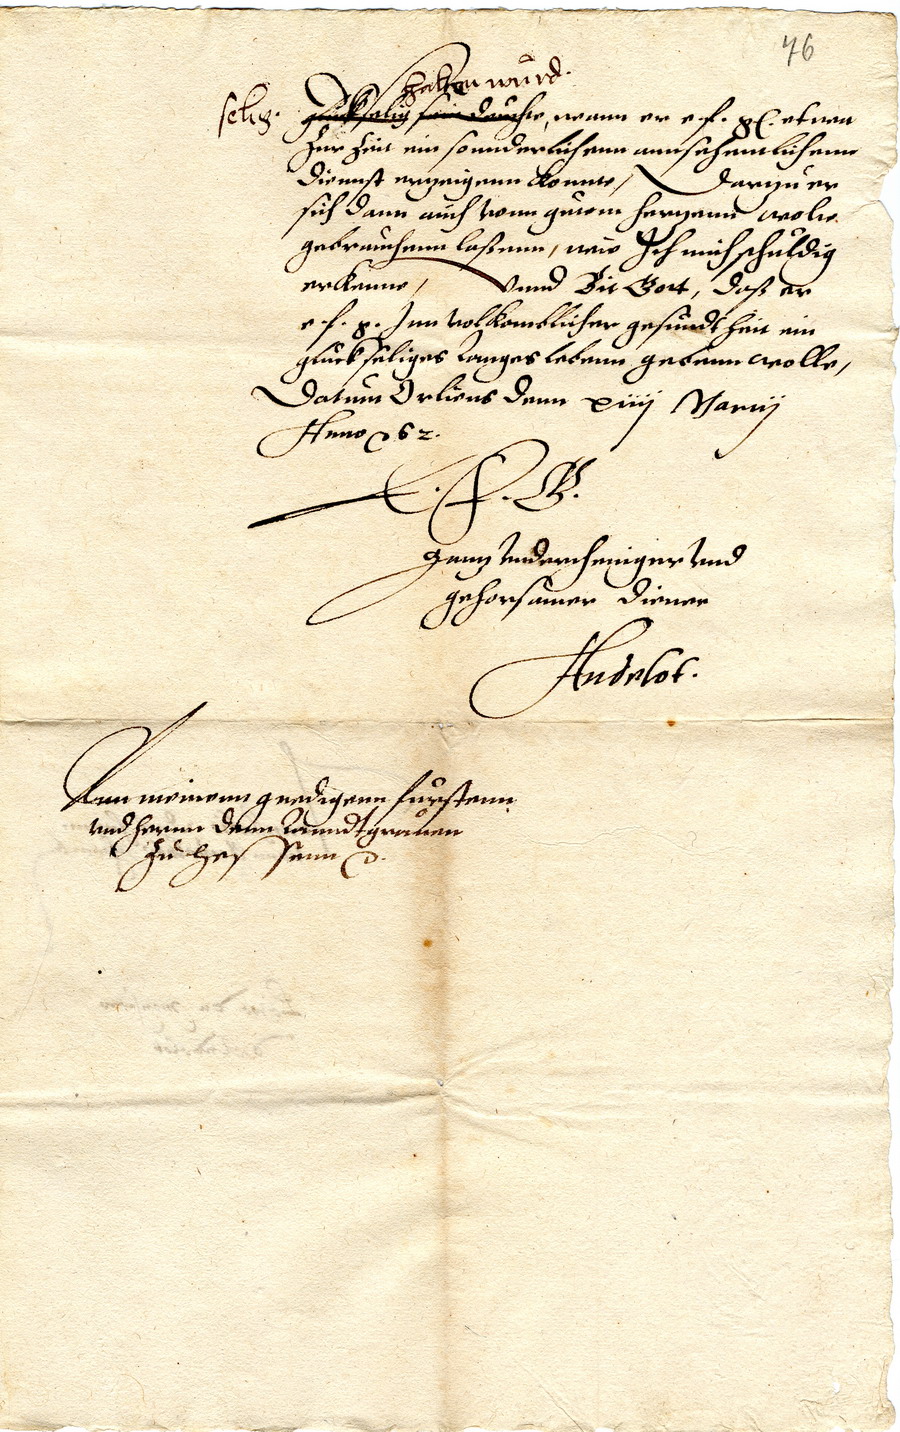 76
halten wurd.
selig. glückselig sein dauchte, wann er e. f. g. etwan
Zur Zeit ein sonnderlichenn annsehentlichenn
diennst erzeigenn konnte, Darzu er
sich dann auch vonn gutem hertzenn wolte
gebrauchenn laßenn, wie Ich mich schuldig
erkenne, Vnnd Bit Gott, daß er
e. f. g. Inn volkomblicher gesundtheit ein
glückseliges langes lebenn gebenn wolle,
Datum Orliens denn xiiij Marcij
Anno 62.
E. F. G.
gantz vndertheniger vnd
gehorsamer diener
Andelot.
Ann meinenn gnedigenn fürstenn
vnd hernn denn Lanndtgrauen
zu Hessenn